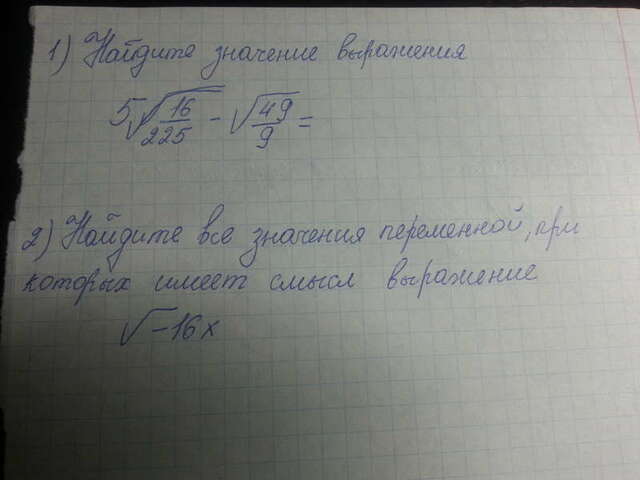 1) Найдите значение выражения
5√16/225 - √49/9 =
2) Найдите все значения переменной, при
которых имеет смысл выражение
√-16x